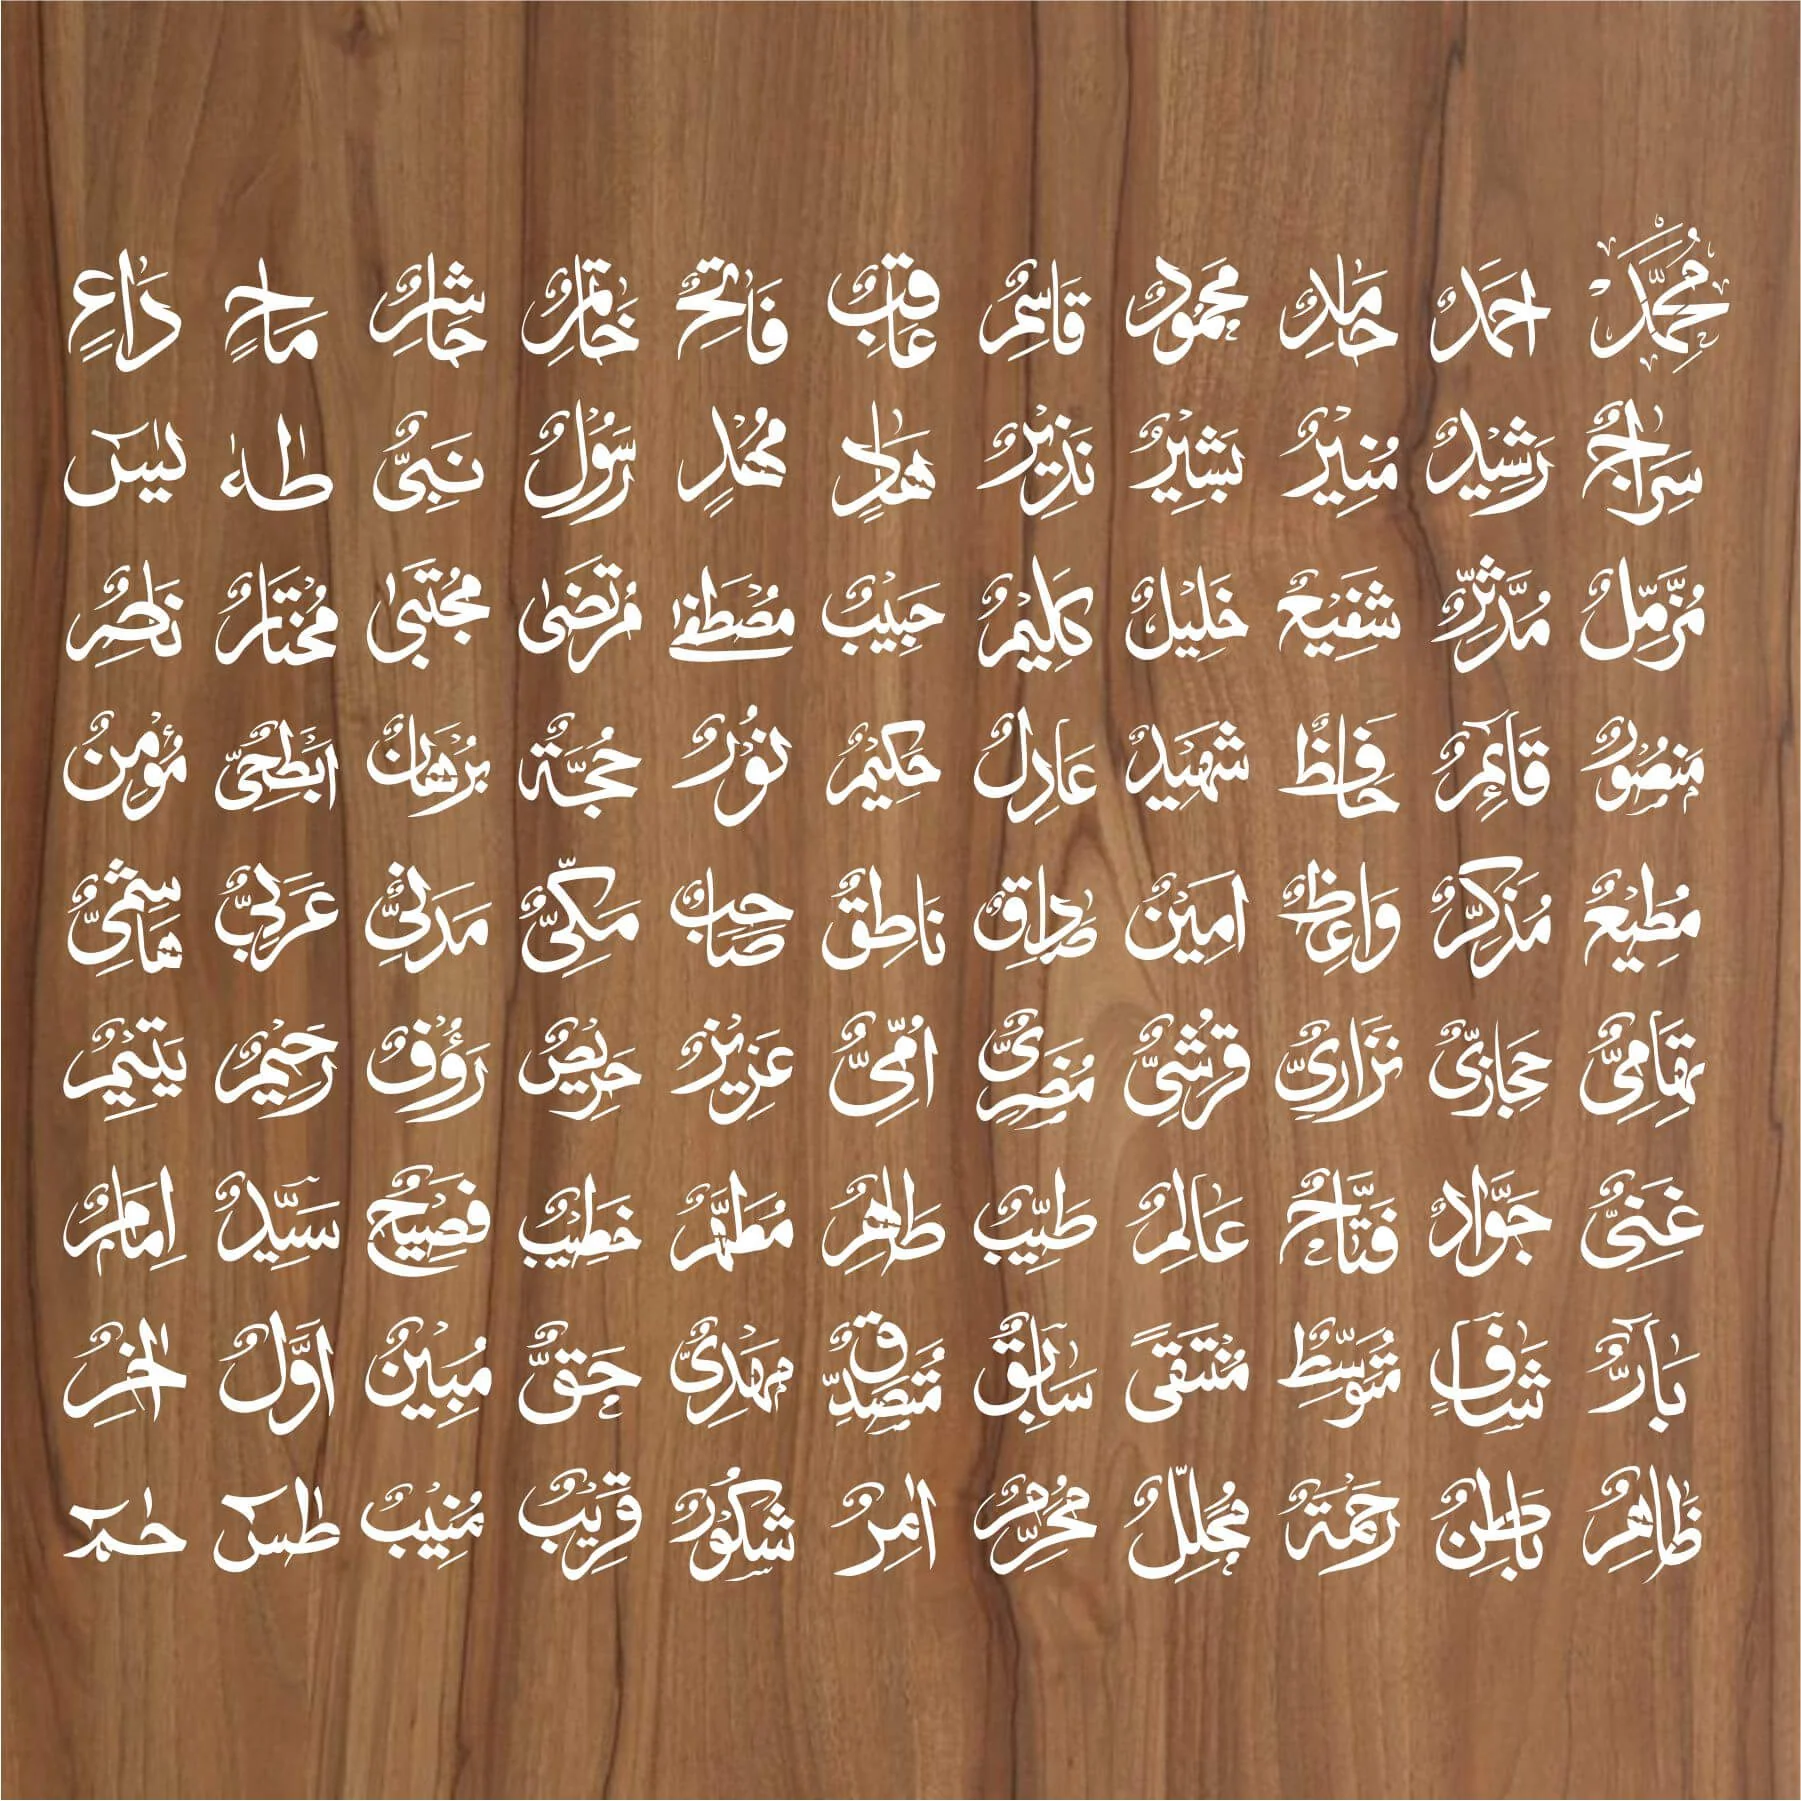 مُحَمَّدٌ اَحْمَدُ حَامِدٌ مَحْمُودٌ قَاسِمٌ عَاقِبٌ فَاتِحٌ خَاتِمٌ حَاشِرٌ مَاحٍ دَاعٍ
سَرَاجٌ رَشِيْدٌ مُنِيْرٌ بَشِيْرٌ نَذِيْرٌ هَادٍ مُهْدٍ رَسُوْلٌ نَبِيٌّ طٰهٰ يٰسٓ
مُزَّمِّلٌ مُدَّثِّرٌ شَفِيْعٌ خَلِيْلٌ كَلِيْمٌ حَبِيْبٌ مُصْطَفٰے مُرْتَضٰى مُجْتَبٰى مُخْتَارٌ نَاصِرٌ
مَنْصُوْرٌ قَائِمٌ حَافِظٌ شَهِيْدٌ عَادِلٌ حَكِيْمٌ نُوْرٌ حُجَّةٌ بُرْهَانٌ اَبْطَحِيٌّ مُؤْمِنٌ
مُطِيْعٌ مُذَكِّرٌ وَاعِظٌ اَمِيْنٌ صَادِقٌ نَاطِقٌ صَاحِبٌ مَكِّيٌّ مَدَنِيٌّ عَرَبِيٌّ هَاشِمِيٌّ
تِهَامِيٌّ حِجَازِيٌّ نِزَارِيٌّ قُرَشِيٌّ مُضَرِيٌّ اُمِّيٌّ عَزِيْزٌ حَرِيْصٌ رَؤُفٌ رَحِيْمٌ يَتِيْمٌ
غَنِيٌّ جَوَّادٌ فَتَّاحٌ عَالِمٌ طَيِّبٌ طَاهِرٌ مُطَهَّرٌ خَطِيْبٌ فَصِيْحٌ سَيِّدٌ اِمَامٌ
بَارٌّ شَافٍ مُتَوَسِّطٌ مُتَّقٍ سَابِقٌ مُتَصَدِّقٌ مَهْدِيٌّ حَقٌّ مُبِيْنٌ اَوَّلٌ اٰخِرٌ
ظَاهِرٌ بَاطِنٌ رَحْمَةٌ مُحَلِّلٌ مُحَرِّمٌ اٰمِرٌ شَكُوْرٌ قَرِيْبٌ مُنِيْبٌ طٰسٓ حٰمٓ